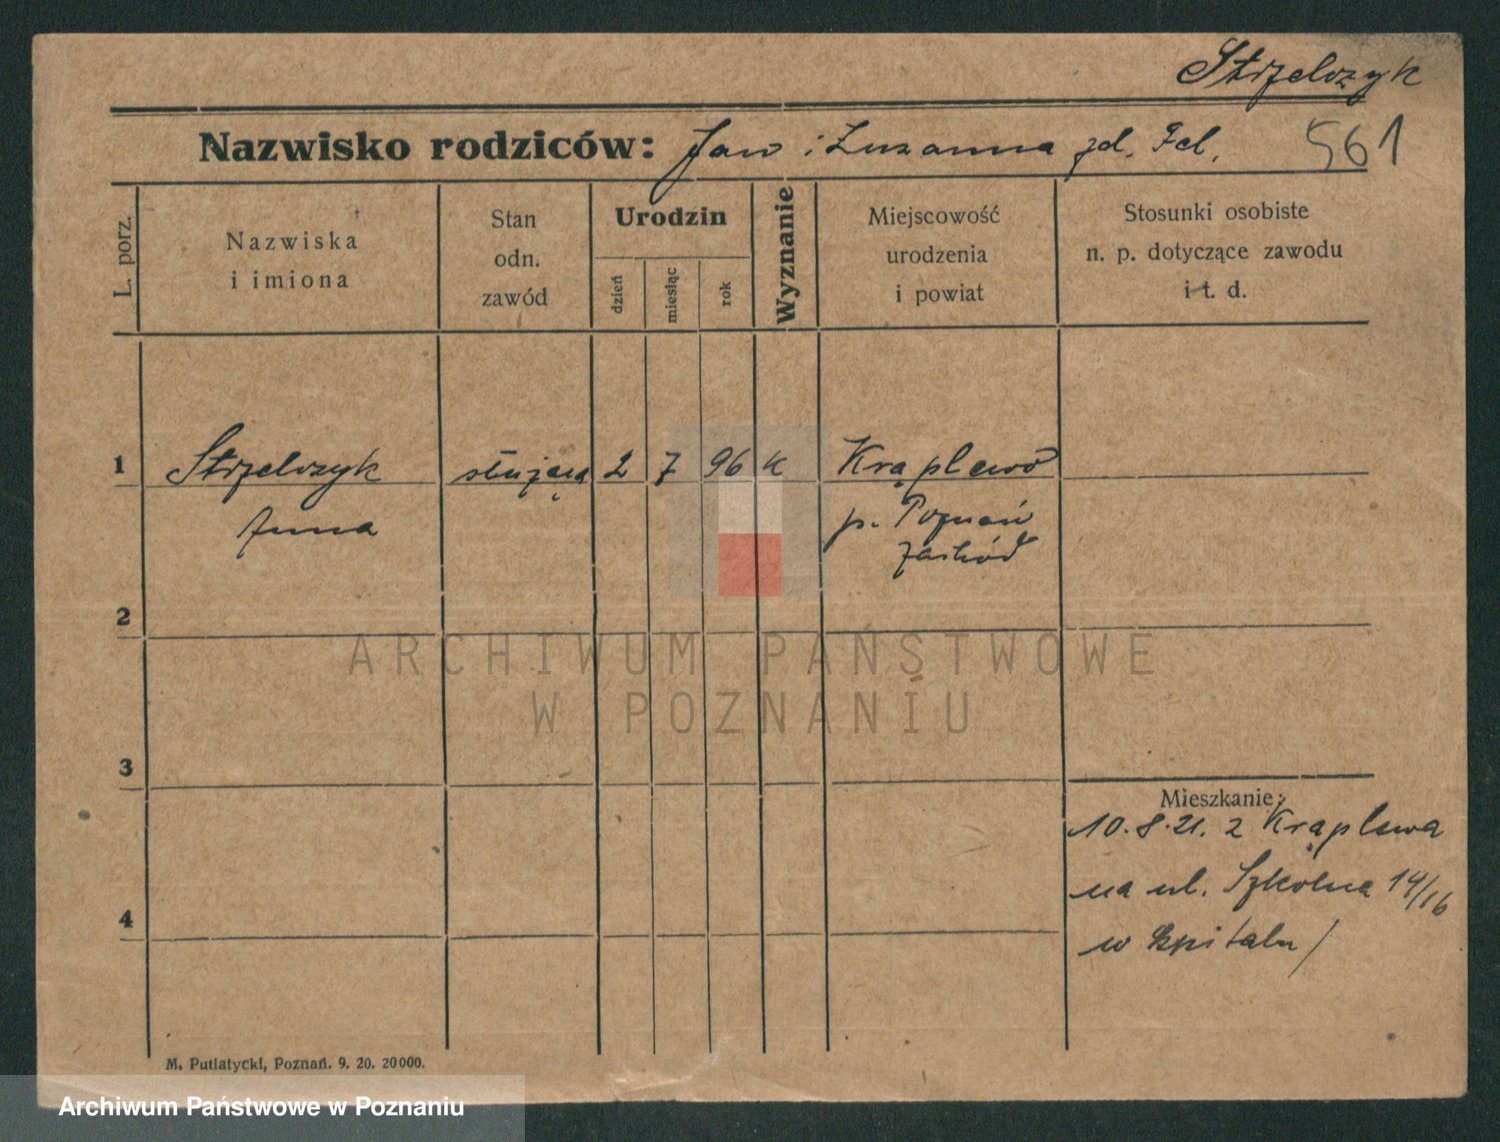 Strzelczyk
Nazwisko rodziców: Jan i Zuzanna zd. Fel. 561
L. porz.
Nazwiska
i imiona
Stan
odn.
zawód
Urodzin
dzień
miesiąc
rok
Wyznanie
Miejscowość
urodzenia
i powiat
Stosunki osobiste
n. p. dotyczące zawodu
i t. d.
1 Strzelczyk służąca 2 7 96 k Krąplewo
Anna p. Poznań
zachód
2
3
4
Mieszkanie:
10.8.21. z Krąplewa
na ul. Szkolna 14/16
w szpitalu/
M. Putiatycki, Poznań. 9. 20. 20000.
ARCHIWUM PAŃSTWOWE
W POZNANIU
Archiwum Państwowe w Poznaniu